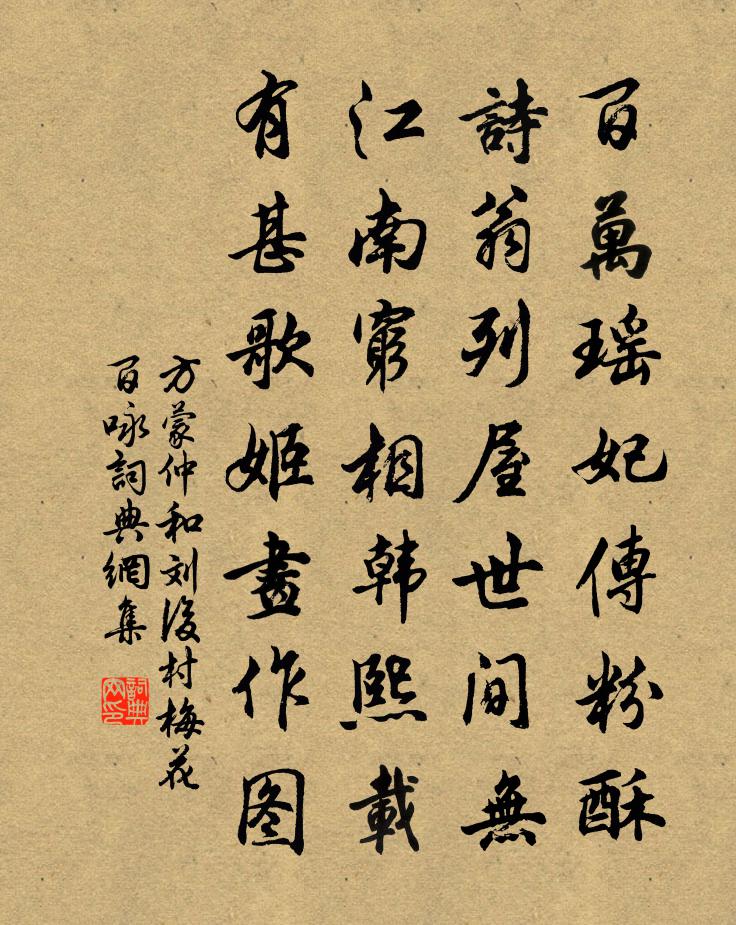 百萬瑶妃傅粉酥
詩翁列屋世间無
江南窮相韩熙載
有甚歌姬畫作图
方蒙仲和刘後村梅花
百咏詞典網集
詞典網印